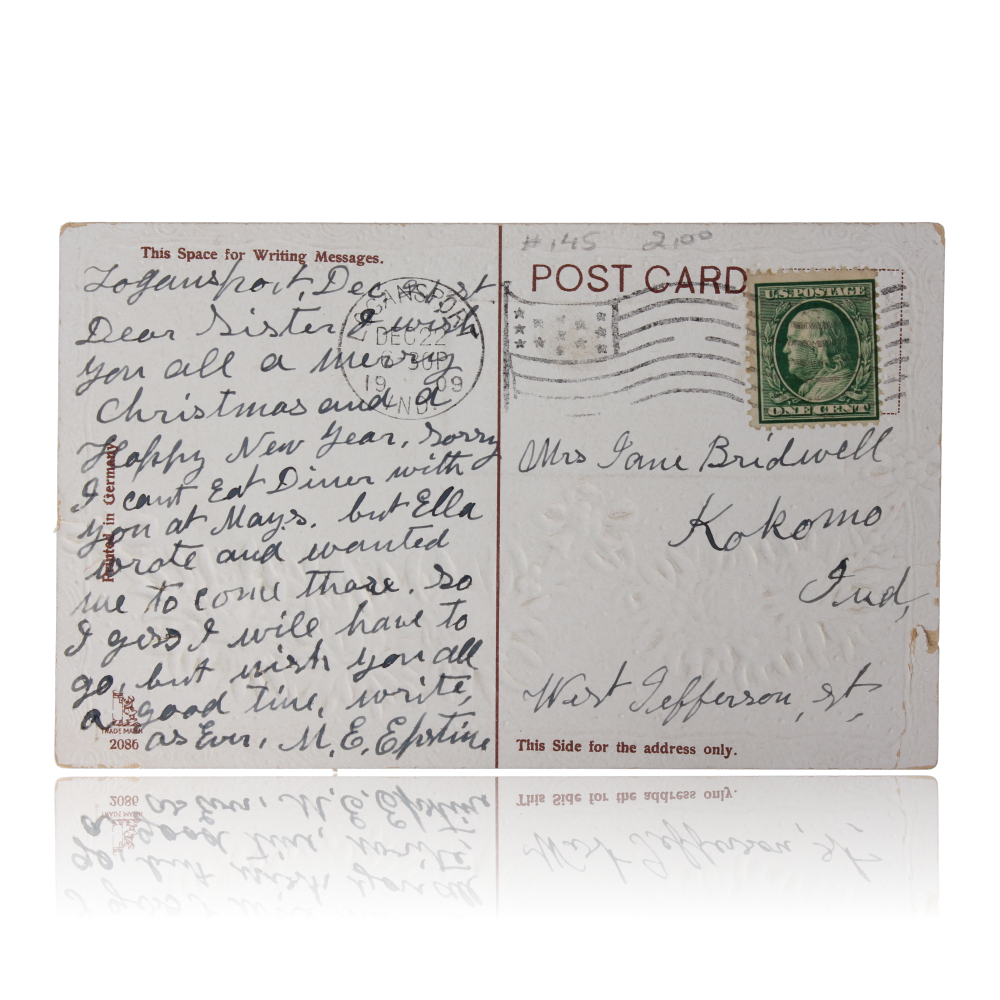 This Space for Writing Messages.
Logansport, Dec, 21st
Dear Sister I wish
you all a merry
Christmas and a
Happy New Year, Sorry
I cant Eat Diner with
you at Mays. but Ella
wrote and wanted
me to come thare. So
I gess I will have to
go, but wish you all
a good time, write,
as Ever, M. E. Epstine
Printed in Germany
TRADE MARK
2086
#145 2,00
POST CARD
LOGANSPORT
DEC 22
30P
1909
IND.
U.S. POSTAGE
ONE CENT
Mrs Jane Bridwell
Kokomo
Ind,
West Jefferson, st,
This Side for the address only.